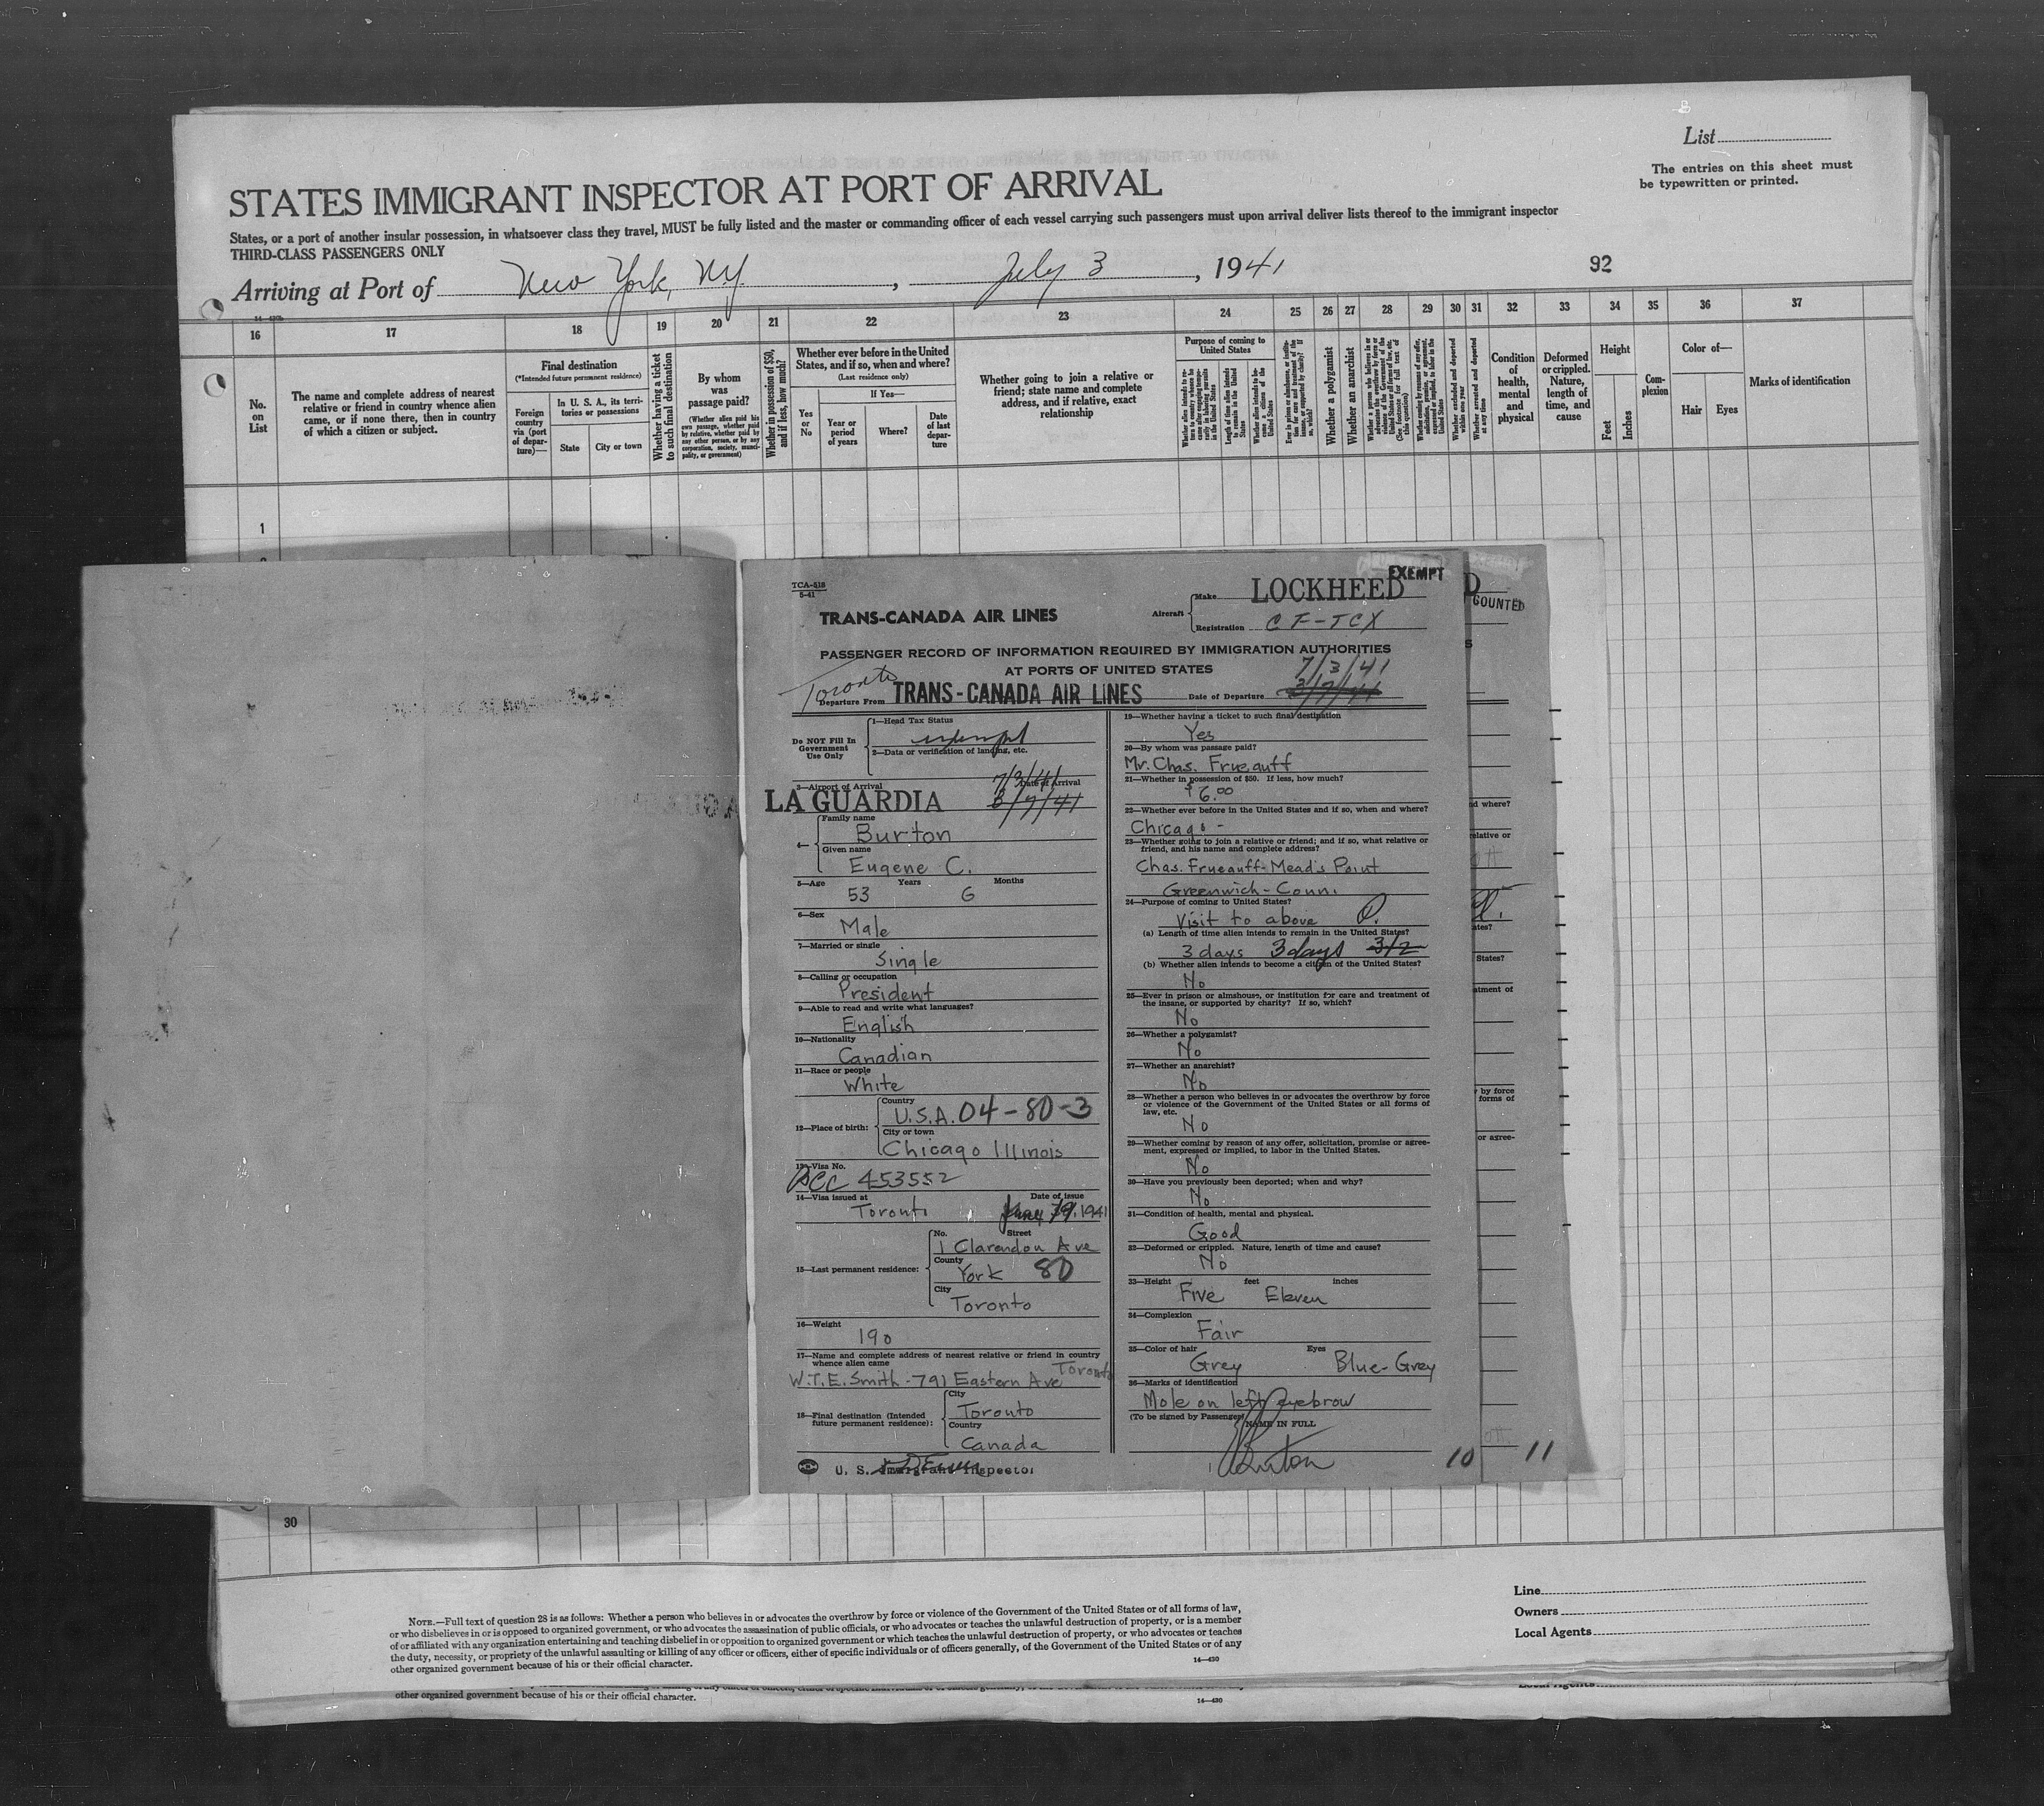 List
The entries on this sheet must
be typewritten or printed.
STATES IMMIGRANT INSPECTOR AT PORT OF ARRIVAL
States, or a port of another insular possession, in whatsoever class they travel, MUST be fully listed and the master or commanding officer of each vessel carrying such passengers must upon arrival deliver lists thereof to the immigrant inspector
THIRD-CLASS PASSENGERS ONLY
Arriving at Port of New York, N.Y. , July 3 , 1941
92
14—430b
16 17 18 19 20 21 22 23 24 25 26 27 28 29 30 31 32 33 34 35 36 37
No.
on
List
The name and complete address of nearest
relative or friend in country whence alien
came, or if none there, then in country
of which a citizen or subject.
Final destination
(*Intended future permanent residence)
Foreign
country
via (port
of depar-
ture)—
In U. S. A., its terri-
tories or possessions
State
City or town
Whether having a ticket
to such final destination
By whom
was
passage paid?
(Whether alien paid his
own passage, whether paid
by relative, whether paid by
any other person, or by any
corporation, society, munici-
pality, or government)
Whether in possession of $50,
and if less, how much?
Whether ever before in the United
States, and if so, when and where?
(Last residence only)
Yes
or
No
If Yes—
Year or
period
of years
Where?
Date
of last
depar-
ture
Whether going to join a relative or
friend; state name and complete
address, and if relative, exact
relationship
Purpose of coming to
United States
Length of time alien intends
to remain in the United
States
Whether alien intends to be-
come a citizen of the
United States
Whether a polygamist
Whether an anarchist
Condition
of
health,
mental
and
physical
Deformed
or crippled.
Nature,
length of
time, and
cause
Height
Feet
Inches
Com-
plexion
Color of—
Hair
Eyes
Marks of identification
1
TCA-518
5-41
TRANS-CANADA AIR LINES
EXEMPT
Aircraft
Make LOCKHEED
Registration CF-TCX
PASSENGER RECORD OF INFORMATION REQUIRED BY IMMIGRATION AUTHORITIES
AT PORTS OF UNITED STATES
7/3/41
Toronto
Departure From TRANS-CANADA AIR LINES Date of Departure 3/7/41
Do NOT Fill In
Government
Use Only
1—Head Tax Status
2—Data or verification of landing, etc.
3—Airport of Arrival Date of Arrival
7/3/41
LA GUARDIA 3/7/41
4—
Family name
Burton
Given name
Eugene C.
5—Age Years Months
53 6
6—Sex
Male
7—Married or single
Single
8—Calling or occupation
President
9—Able to read and write what languages?
English
10—Nationality
Canadian
11—Race or people
White
12—Place of birth:
Country
U.S.A. 04-80-3
City or town
Chicago Illinois
13—Visa No.
BCC 453552
14—Visa issued at Date of issue
Toronto 1941
15—Last permanent residence:
No. Street
1 Clarendon Ave
County
York 80
City
Toronto
16—Weight
190
17—Name and complete address of nearest relative or friend in country
whence alien came
Toronto
W.T.E. Smith - 791 Eastern Ave
18—Final destination (Intended
future permanent residence):
City
Toronto
Country
Canada
U. S. Immigrant Inspector
19—Whether having a ticket to such final destination
Yes
20—By whom was passage paid?
Mr. Chas. Frueauff
21—Whether in possession of $50. If less, how much?
$6.00
22—Whether ever before in the United States and if so, when and where?
Chicago -
23—Whether going to join a relative or friend; and if so, what relative or
friend, and his name and complete address?
Chas. Frueauff - Mead's Point
Greenwich - Conn.
24—Purpose of coming to United States?
Visit to above
(a) Length of time alien intends to remain in the United States?
3 days 3 days 3/2
(b) Whether alien intends to become a citizen of the United States?
No
25—Ever in prison or almshouse, or institution for care and treatment of
the insane, or supported by charity? If so, which?
No
26—Whether a polygamist?
No
27—Whether an anarchist?
No
28—Whether a person who believes in or advocates the overthrow by force
or violence of the Government of the United States or all forms of
law, etc.
No
29—Whether coming by reason of any offer, solicitation, promise or agree-
ment, expressed or implied, to labor in the United States.
No
30—Have you previously been deported; when and why?
No
31—Condition of health, mental and physical.
Good
32—Deformed or crippled. Nature, length of time and cause?
No
33—Height feet inches
Five Eleven
34—Complexion
Fair
35—Color of hair Eyes
Grey Blue-Grey
36—Marks of identification
Mole on left eyebrow
(To be signed by Passenger) NAME IN FULL
Burton
10
11
30
Line
Owners
Local Agents
NOTE.—Full text of question 28 is as follows: Whether a person who believes in or advocates the overthrow by force or violence of the Government of the United States or of all forms of law,
or who disbelieves in or is opposed to organized government, or who advocates the assassination of public officials, or who advocates or teaches the unlawful destruction of property, or is a member
of or affiliated with any organization entertaining and teaching disbelief in or opposition to organized government or which teaches the unlawful destruction of property, or who advocates or teaches
the duty, necessity, or propriety of the unlawful assaulting or killing of any officer or officers, either of specific individuals or of officers generally, of the Government of the United States or of any
other organized government because of his or their official character.
14—430
other organized government because of his or their official character.
14—430